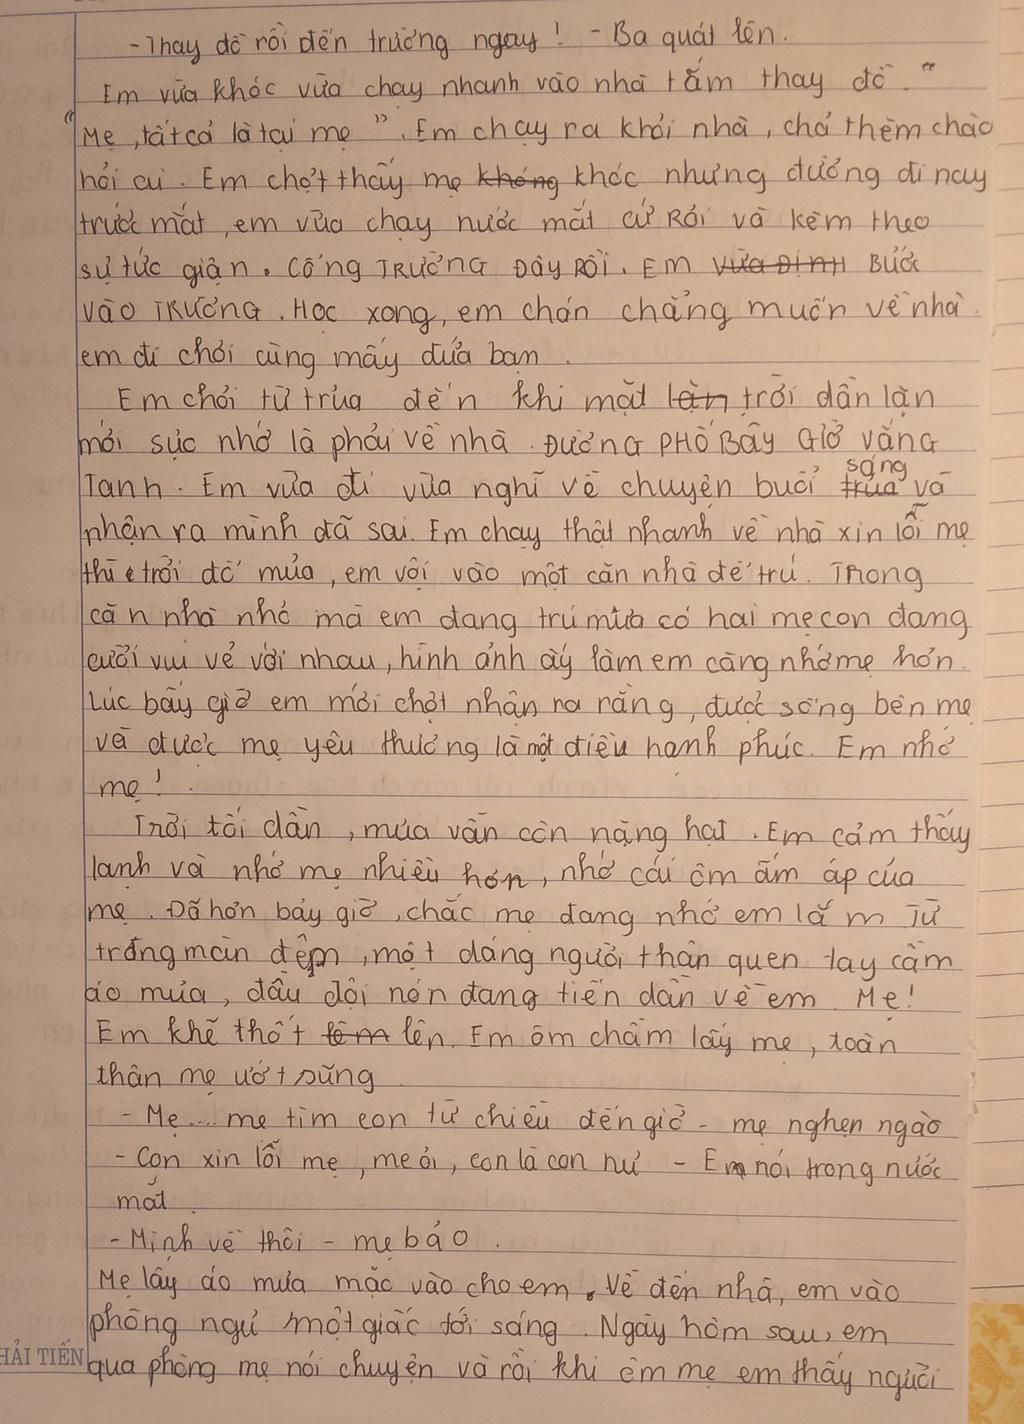 - Thay đồ rồi đến trường ngay! - Ba quát lên.
Em vừa khóc vừa chạy nhanh vào nhà tắm thay đồ. "
"Mẹ, tất cả là tại mẹ". Em chạy ra khỏi nhà, chả thèm chào
hỏi ai. Em chợt thấy mẹ không khóc nhưng đường đi nay
trước mắt, em vừa chạy nước mắt cứ Rơi và kèm theo
sự tức giận. CỔNG TRƯỜNG ĐÂY RỒI. EM VỪA ĐỊNH BƯỚC
VÀO TRƯỜNG. Học xong, em chán chẳng muốn về nhà
em đi chơi cùng mấy đứa bạn.
Em chơi từ trưa đến khi mặt lặn trời dần lặn
mới sực nhớ là phải về nhà. ĐƯỜNG PHỐ BÂY GIỜ VẮNG
TANH. Em vừa đi vừa nghĩ về chuyện buổi trưa sáng và
nhận ra mình đã sai. Em chạy thật nhanh về nhà xin lỗi mẹ
thì trời đổ mưa, em vội vào một căn nhà để trú. Trong
căn nhà nhỏ mà em đang trú mưa có hai mẹ con đang
cười vui vẻ với nhau, hình ảnh ấy làm em càng nhớ mẹ hơn.
Lúc bấy giờ em mới chợt nhận ra rằng, được sống bên mẹ
và được mẹ yêu thương là một điều hạnh phúc. Em nhớ
mẹ!
Trời tối dần, mưa vẫn còn nặng hạt. Em cảm thấy
lạnh và nhớ mẹ nhiều hơn, nhớ cái ôm ấm áp của
mẹ. Đã hơn bảy giờ, chắc mẹ đang nhớ em lắm Từ
trong màn đêm, một dáng người thân quen tay cầm
áo mưa, đầu đội nón đang tiến dần về em. Mẹ!
Em khẽ thốt lên. Em ôm chầm lấy mẹ, toàn
thân mẹ ướt sũng
- Mẹ... mẹ tìm con từ chiều đến giờ - mẹ nghẹn ngào
- Con xin lỗi mẹ, mẹ ơi, con là con hư - Em nói trong nước
mắt.
- Mình về thôi - mẹ bảo.
Mẹ lấy áo mưa mặc vào cho em. Về đến nhà, em vào
phòng ngủ một giấc tới sáng. Ngày hôm sau, em
HẢI TIẾN qua phòng mẹ nói chuyện và rồi khi ôm mẹ em thấy người